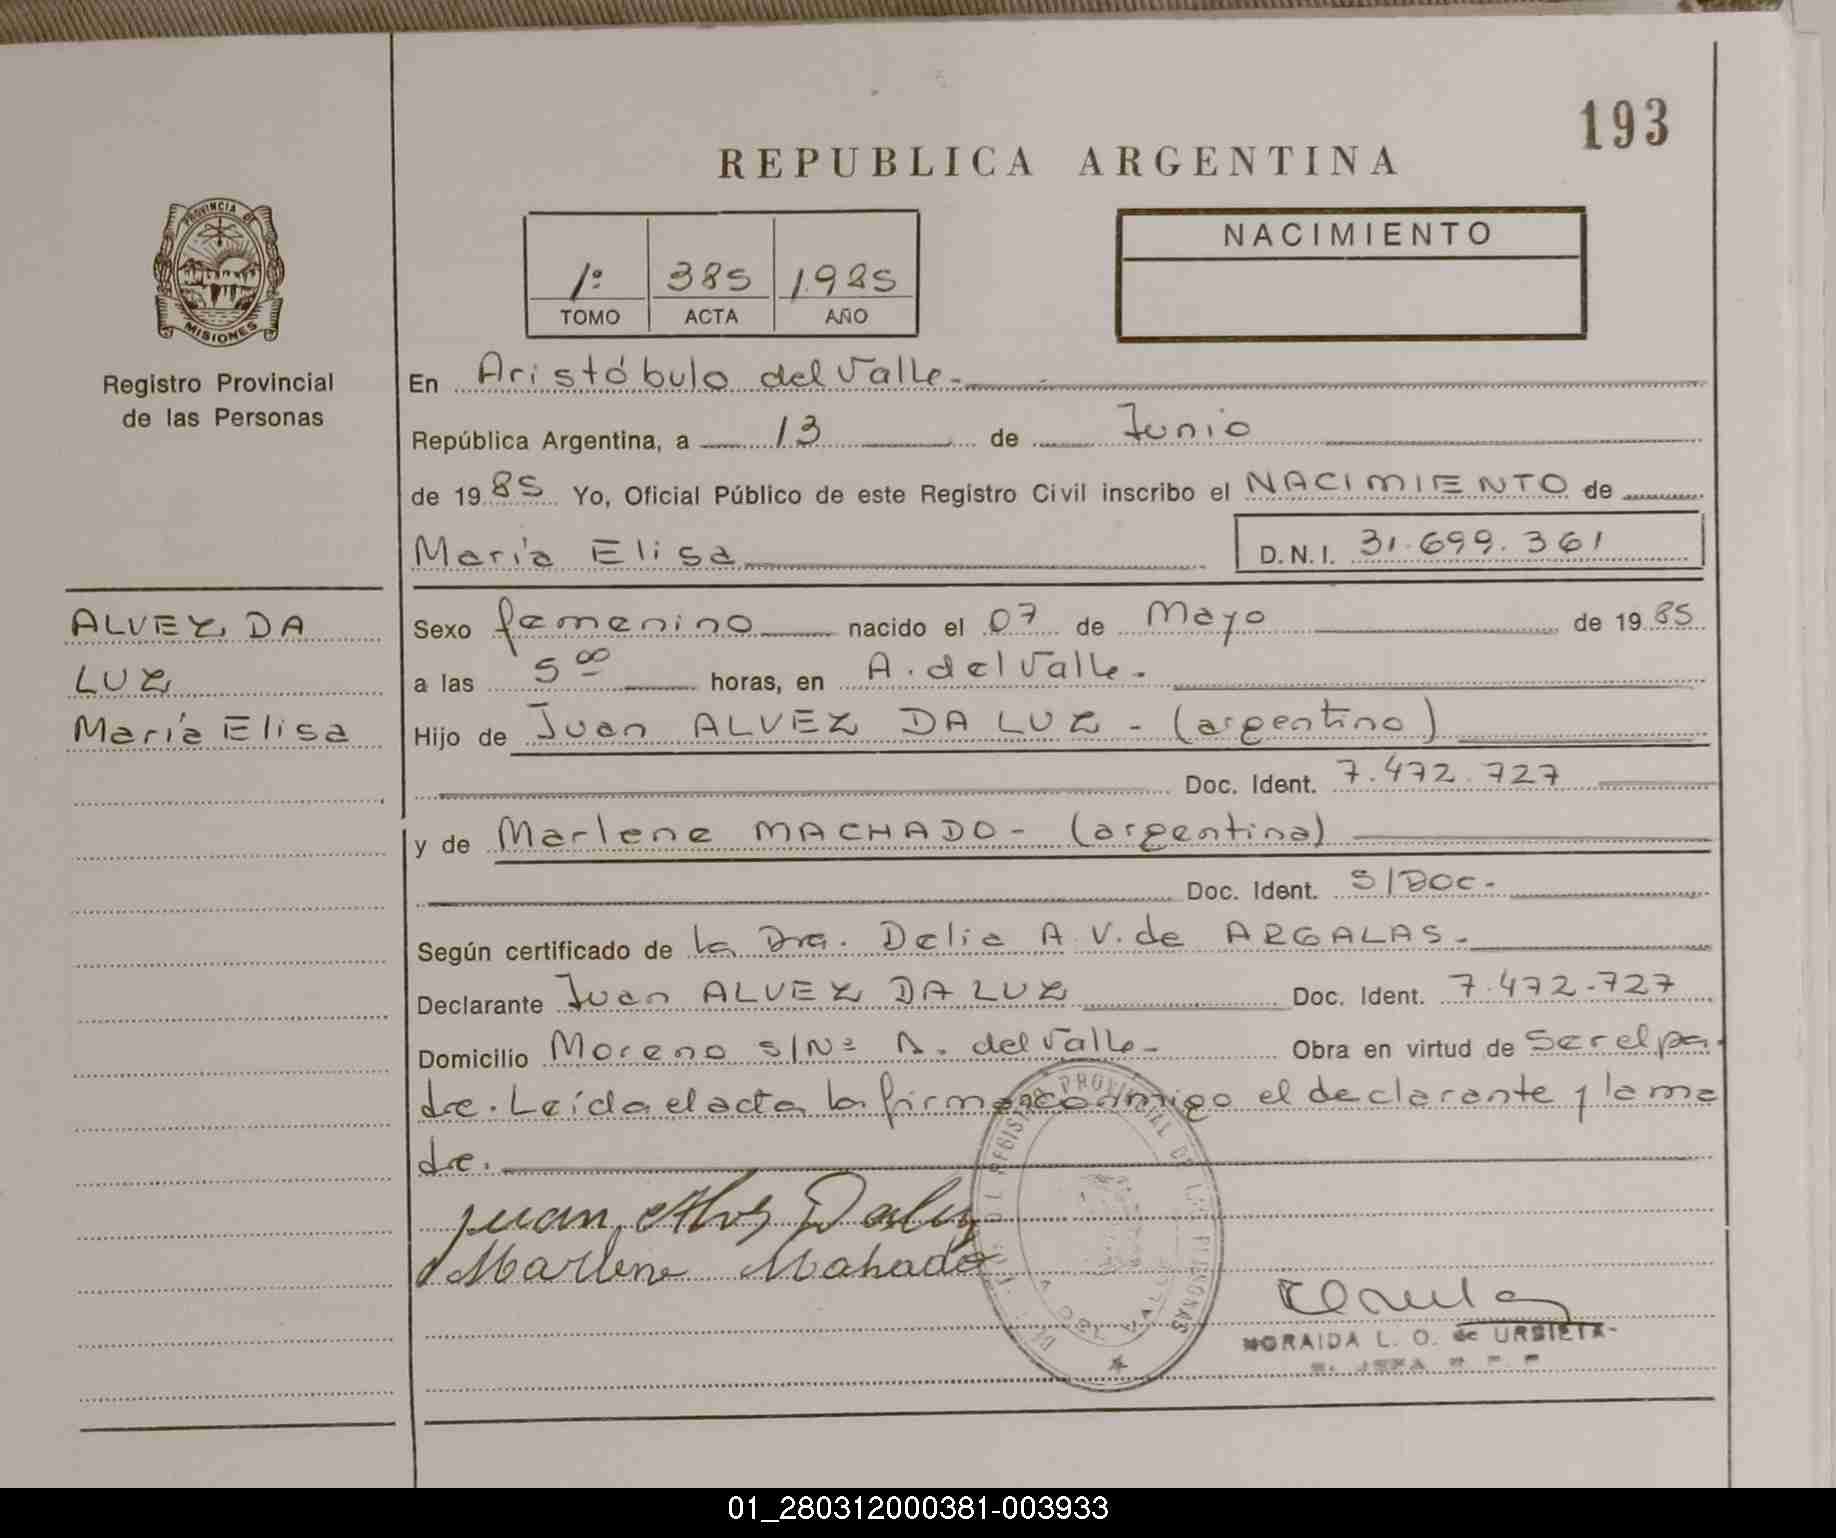 193
REPUBLICA ARGENTINA
PROVINCIA DE
MISIONES
Registro Provincial
de las Personas
1º 385 1.985
TOMO ACTA AÑO
NACIMIENTO
En Aristóbulo del Valle.-
República Argentina, a 13 de Junio
de 1985 Yo, Oficial Público de este Registro Civil inscribo el NACIMIENTO de
María Elisa D.N.I. 31.699.361
ALVEZ DA
LUZ
María Elisa
Sexo femenino nacido el 07 de Mayo de 1985
a las 5 00 horas, en A. del Valle.-
Hijo de Juan ALVEZ DA LUZ - (argentino)
Doc. Ident. 7.472.727
y de Marlene MACHADO - (argentina)
Doc. Ident. S/DOC.-
Según certificado de la Dra. Delia A. V. de ARGALAS.-
Declarante Juan ALVEZ DA LUZ Doc. Ident. 7.472.727
Domicilio Moreno s/Nº A. del Valle.- Obra en virtud de Ser el pa-
dre. Leída el acta la firman conmigo el declarante y la ma
dre.
REGISTRO PROVINCIAL DE LAS PERSONAS
A. DEL VALLE
Juan Alves Daluz
Marlene Mahado
NORAIDA L. O. de URBIETA
01_280312000381-003933